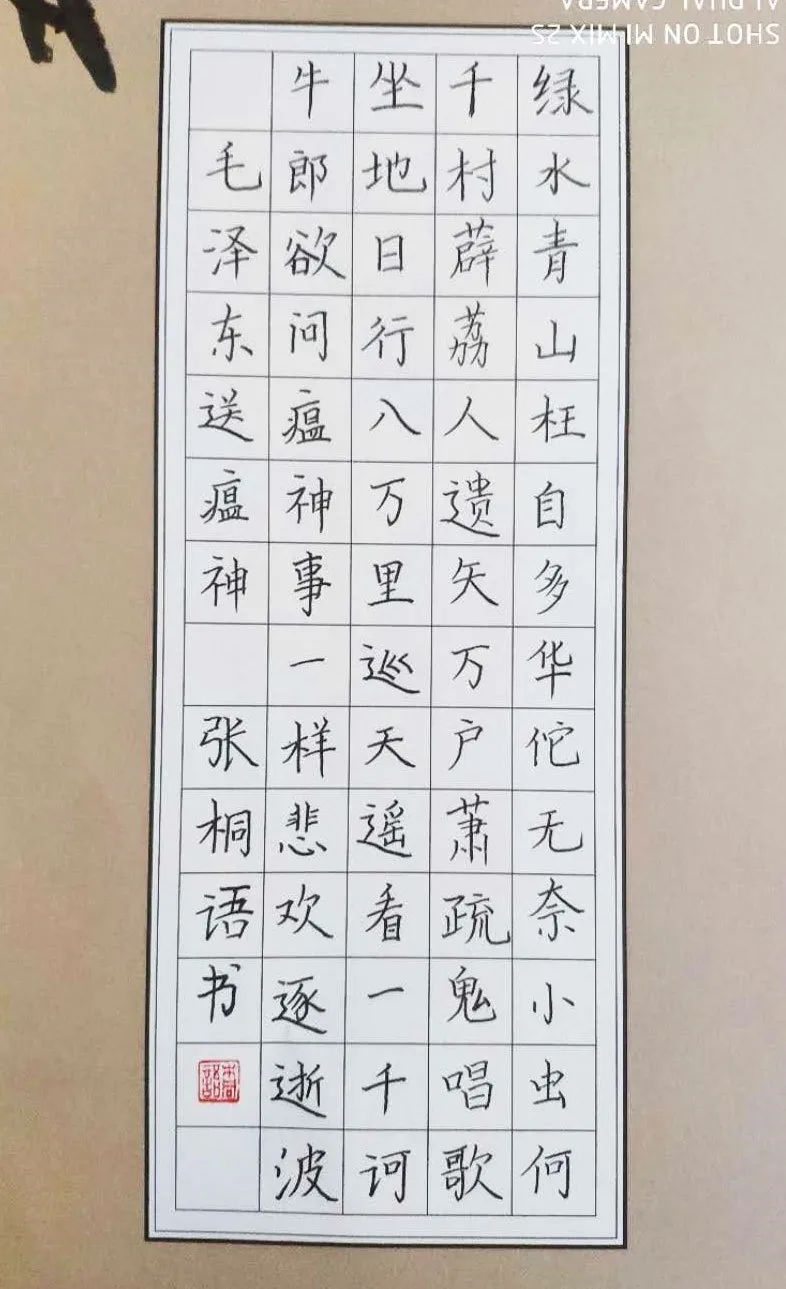 绿水青山枉自多华佗无奈小虫何
千村薜荔人遗矢万户萧疏鬼唱歌
坐地日行八万里巡天遥看一千河
牛郎欲问瘟神事一样悲欢逐逝波
毛泽东送瘟神 张桐语书
桐語
SHOT ON MI MIX 2S
AI DUAL CAMERA